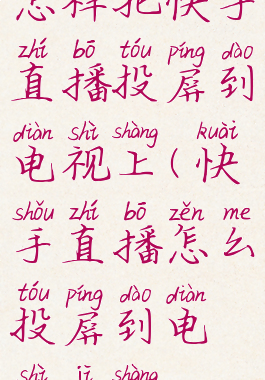 怎样把快手
zhí bō tóu píng dào
直播投屏到
diàn shì shàng kuài
电视上（快
shǒu zhí bō zěn me
手直播怎么
tóu píng dào diàn
投屏到电
shì jī shàng